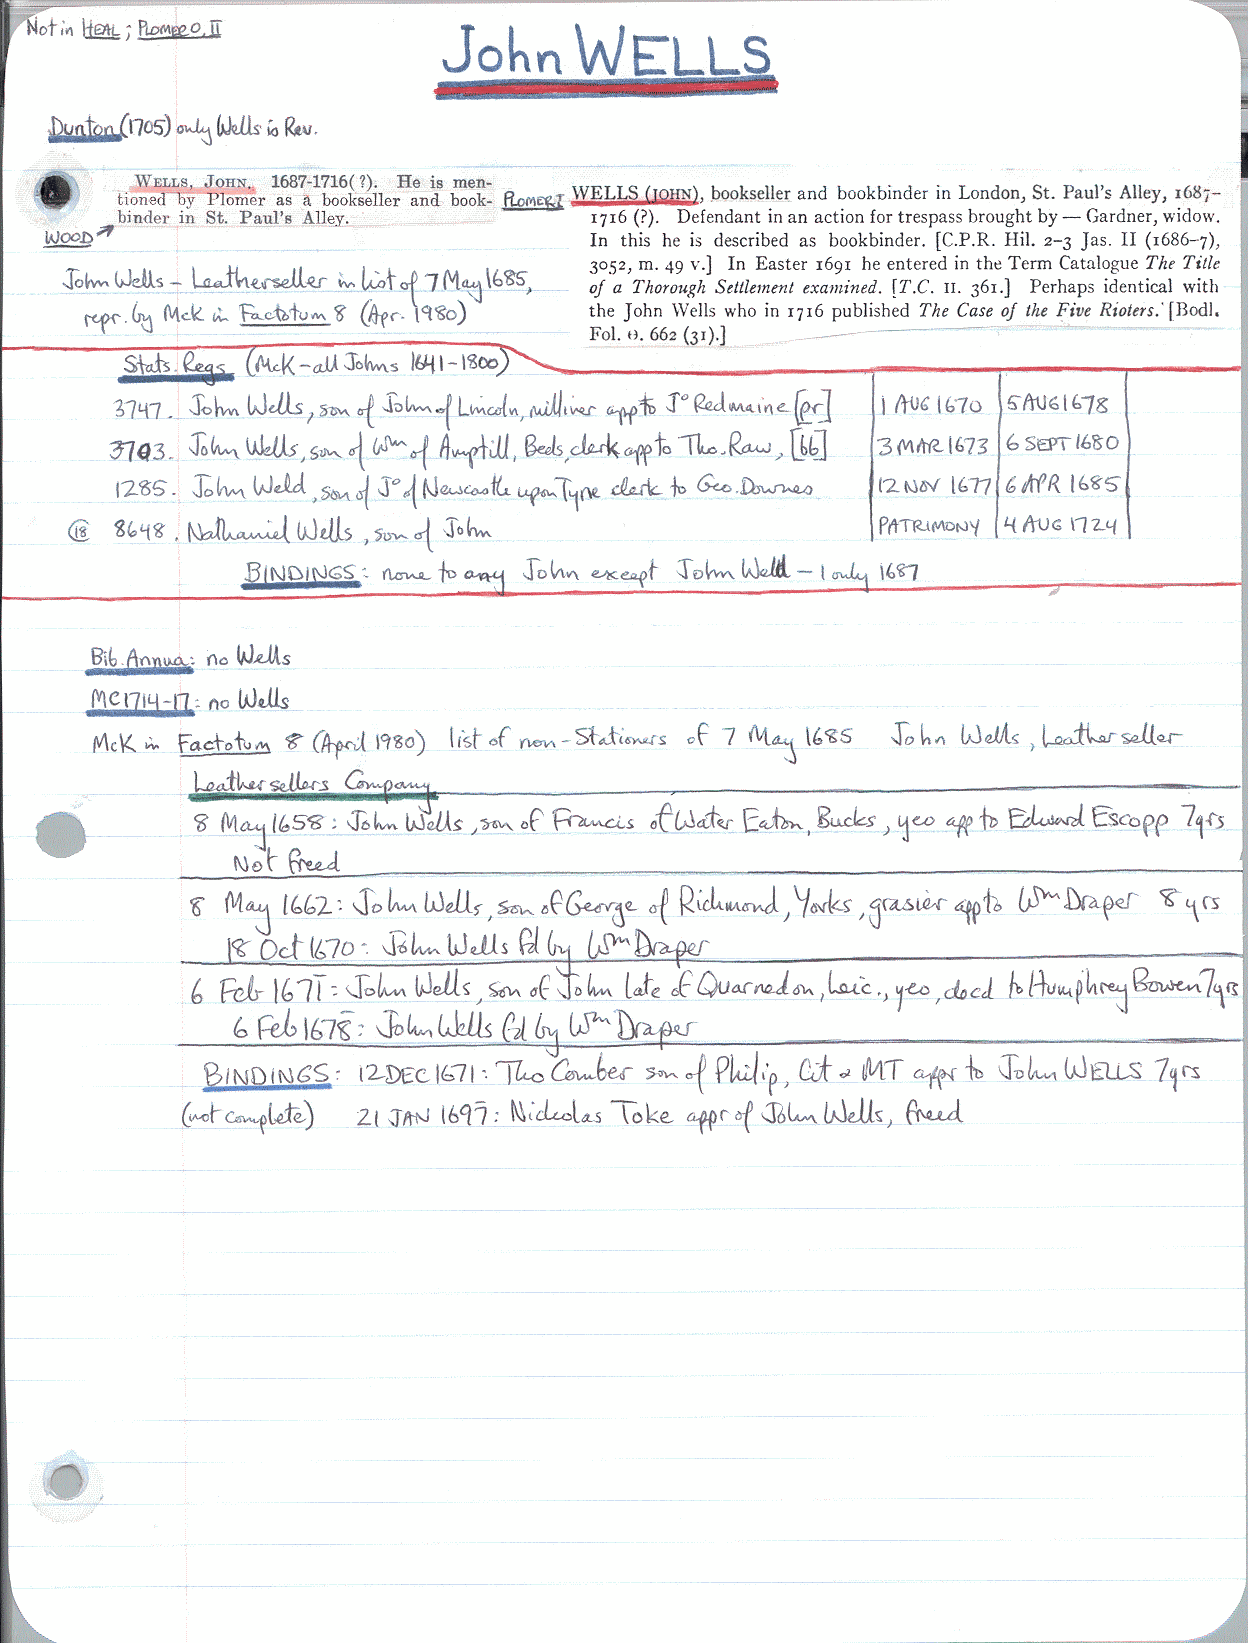 Not in HEAL; PLOMER O, II
John WELLS
Dunton (1705) only Wells is Rev.
WELLS, JOHN. 1687-1716(?). He is men-
tioned by Plomer as a bookseller and book-
binder in St. Paul's Alley.
WOOD
PLOMER I
WELLS (JOHN), bookseller and bookbinder in London, St. Paul's Alley, 1687–
1716 (?). Defendant in an action for trespass brought by — Gardner, widow.
In this he is described as bookbinder. [C.P.R. Hil. 2–3 Jas. II (1686–7),
3052, m. 49 v.] In Easter 1691 he entered in the Term Catalogue The Title
of a Thorough Settlement examined. [T.C. II. 361.] Perhaps identical with
the John Wells who in 1716 published The Case of the Five Rioters. [Bodl.
Fol. Θ. 662 (31).]
John Wells – Leatherseller in list of 7 May 1685,
repr. by McK in Factotum 8 (Apr. 1980)
Stats. Regs (McK – all Johns 1641–1800)
3747. John Wells, son of John of Lincoln, milliner app to Jº Redmaine [pr] 1 AUG 1670 5 AUG 1678
3703. John Wells, son of Wm of Amptill, Beds, clerk app to Tho. Raw, [bb] 3 MAR 1673 6 SEPT 1680
1285. John Weld, son of Jº of Newcastle upon Tyne clerk to Geo. Downes 12 NOV 1677 6 APR 1685
18 8648. Nathaniel Wells, son of John PATRIMONY 4 AUG 1724
BINDINGS: none to any John except John Weld – 1 only 1687
Bib. Annua: no Wells
MC1714–17: no Wells
McK in Factotum 8 (April 1980) list of non-Stationers of 7 May 1685 John Wells, Leatherseller
Leathersellers Company
8 May 1658: John Wells, son of Francis of Water Eaton, Bucks, yeo app to Edward Escopp 7yrs
Not freed
8 May 1662: John Wells, son of George of Richmond, Yorks, grasier app to Wm Draper 8 yrs
18 Oct 1670: John Wells fd by Wm Draper
6 Feb 1671: John Wells, son of John late of Quarnedon, Leic., yeo, decd to Humphrey Bowen 7yrs
6 Feb 1678: John Wells fd by Wm Draper
BINDINGS: 12 DEC 1671: Tho Comber son of Philip, Cit & MT appr to John WELLS 7yrs
(not complete) 21 JAN 1697: Nicholas Toke appr of John Wells, freed